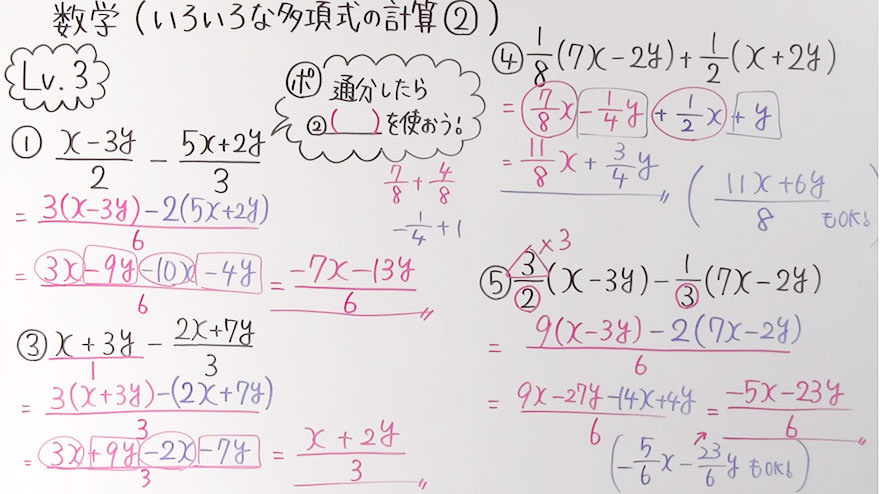 数学(いろいろな多項式の計算②)
Lv.3
ポ 通分したら
②( )を使おう!
① (x-3y)/2 - (5x+2y)/3
= (3(x-3y)-2(5x+2y))/6
= (3x-9y-10x-4y)/6 = (-7x-13y)/6
7/8 + 4/8
-1/4 + 1
③ (x+3y)/1 - (2x+7y)/3
= (3(x+3y)-(2x+7y))/3
= (3x+9y-2x-7y)/3 = (x+2y)/3
④ 1/8(7x-2y)+1/2(x+2y)
= 7/8x-1/4y+1/2x+y
= 11/8x+3/4y
((11x+6y)/8 もOK!)
×3
⑤ 3/2(x-3y)-1/3(7x-2y)
= (9(x-3y)-2(7x-2y))/6
= (9x-27y-14x+4y)/6 = (-5x-23y)/6
(-5/6x-23/6y もOK!)